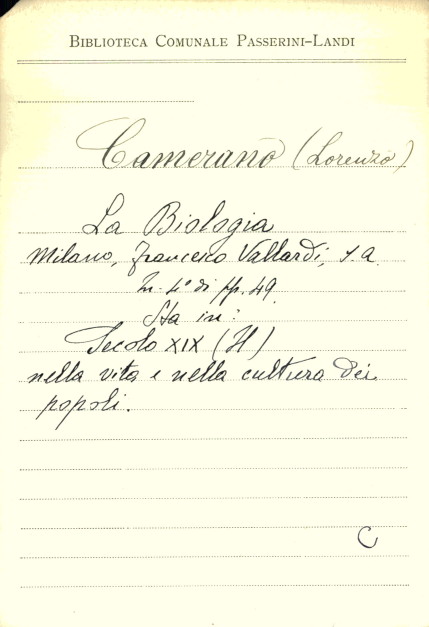 BIBLIOTECA COMUNALE PASSERINI-LANDI
Camerano (Lorenzo)
La Biologia
Milano, Francesco Vallardi, s.a
In. 4° di pp. 49.
Sta in:
Secolo XIX (Il)
nella vita e nella cultura dei
popoli.
C